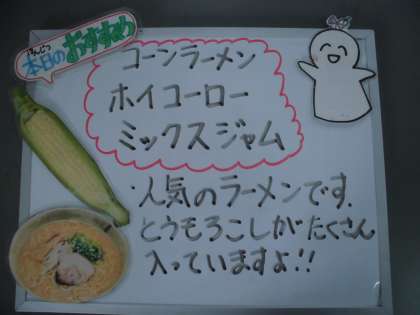 ほんじつ
本日の
おすすめ
コーンラーメン
ホイコーロー
ミックスジャム
・人気のラーメンです.
とうもろこしがたくさん
入っていますよ!!